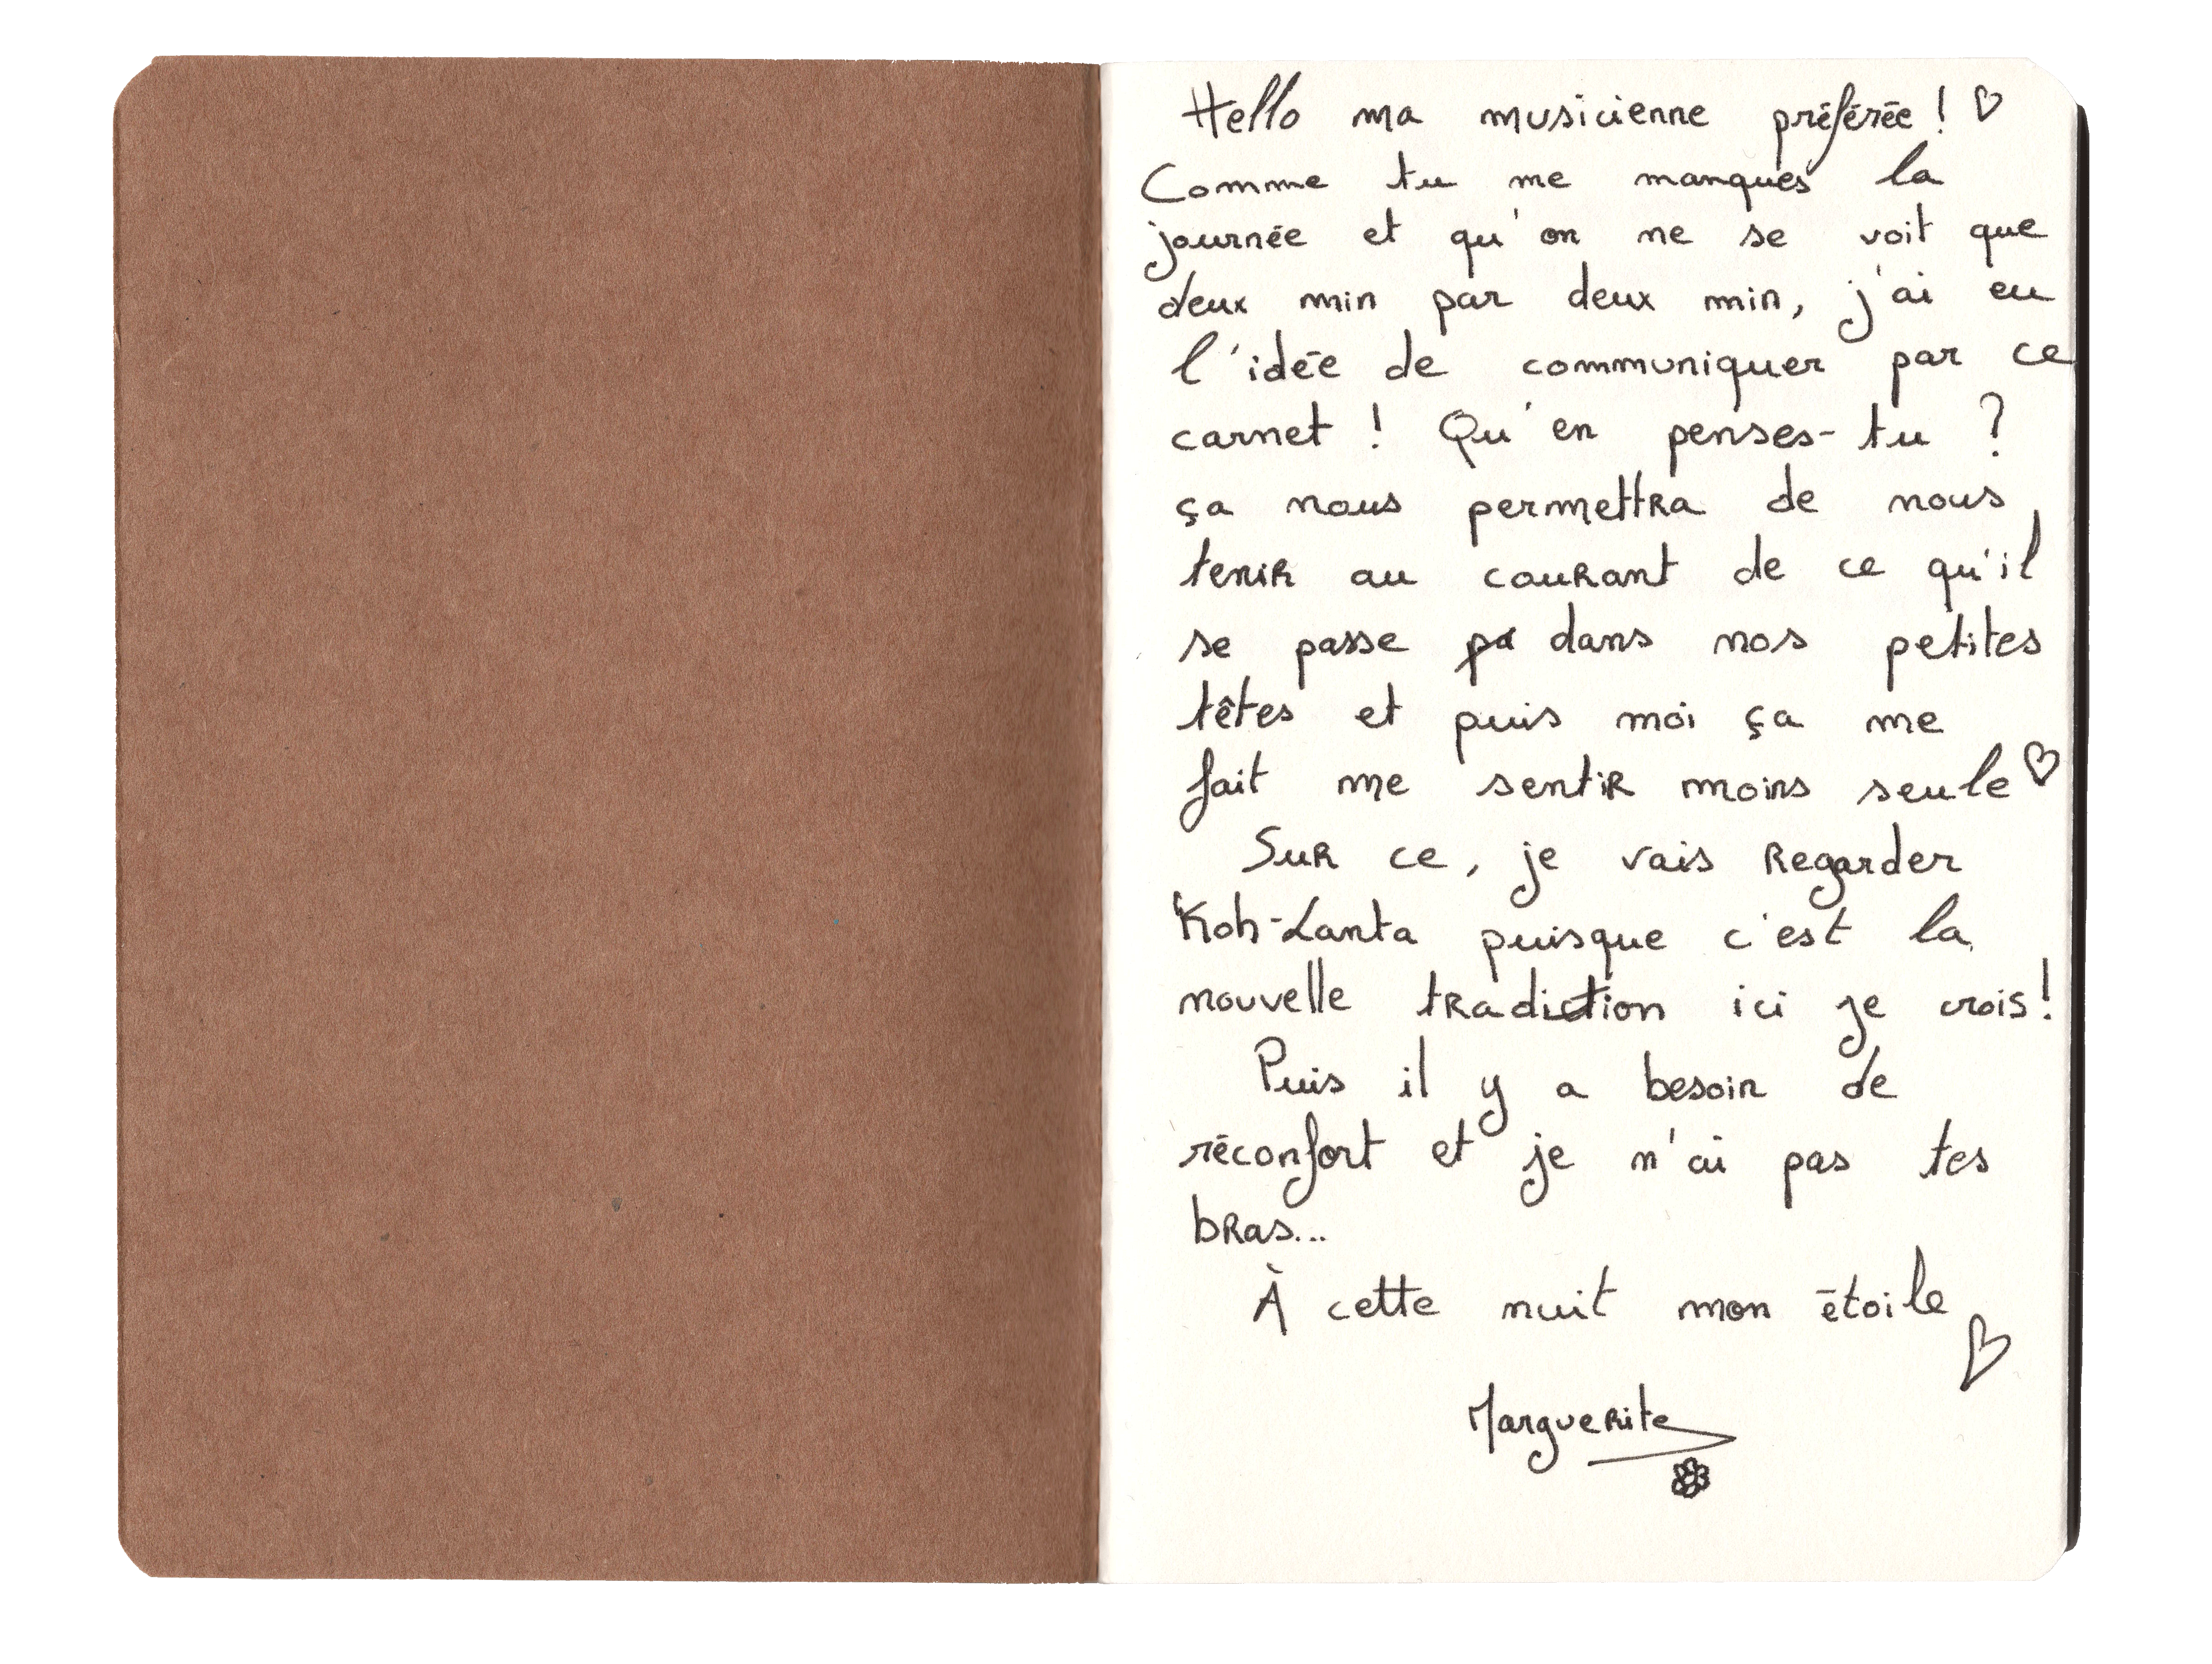 Hello ma musicienne préférée ! ♡
Comme tu me manques la
journée et qu'on ne se voit que
deux min par deux min, j'ai eu
l'idée de communiquer par ce
carnet ! Qu'en penses-tu ?
ça nous permettra de nous
tenir au courant de ce qu'il
se passe pa dans nos petites
têtes et puis moi ça me
fait me sentir moins seule ♡
Sur ce, je vais regarder
Koh-Lanta puisque c'est la
nouvelle tradiction ici je crois !
Puis il y a besoin de
réconfort et je n'ai pas tes
bras...
À cette nuit mon étoile
♡
Marguerite